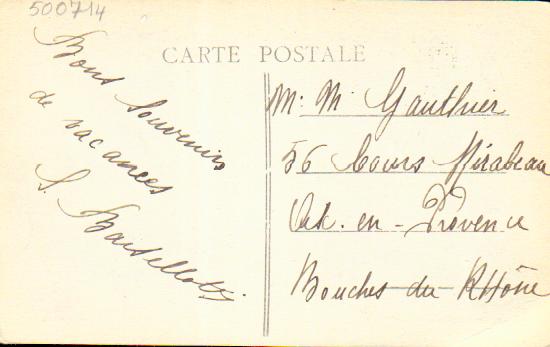 500714
CARTE POSTALE
Bons Souvenirs
de vacances
S.
M. M Gauthier
56 Cours Mirabeau
Aix. en - Provence
Bouches du Rhône